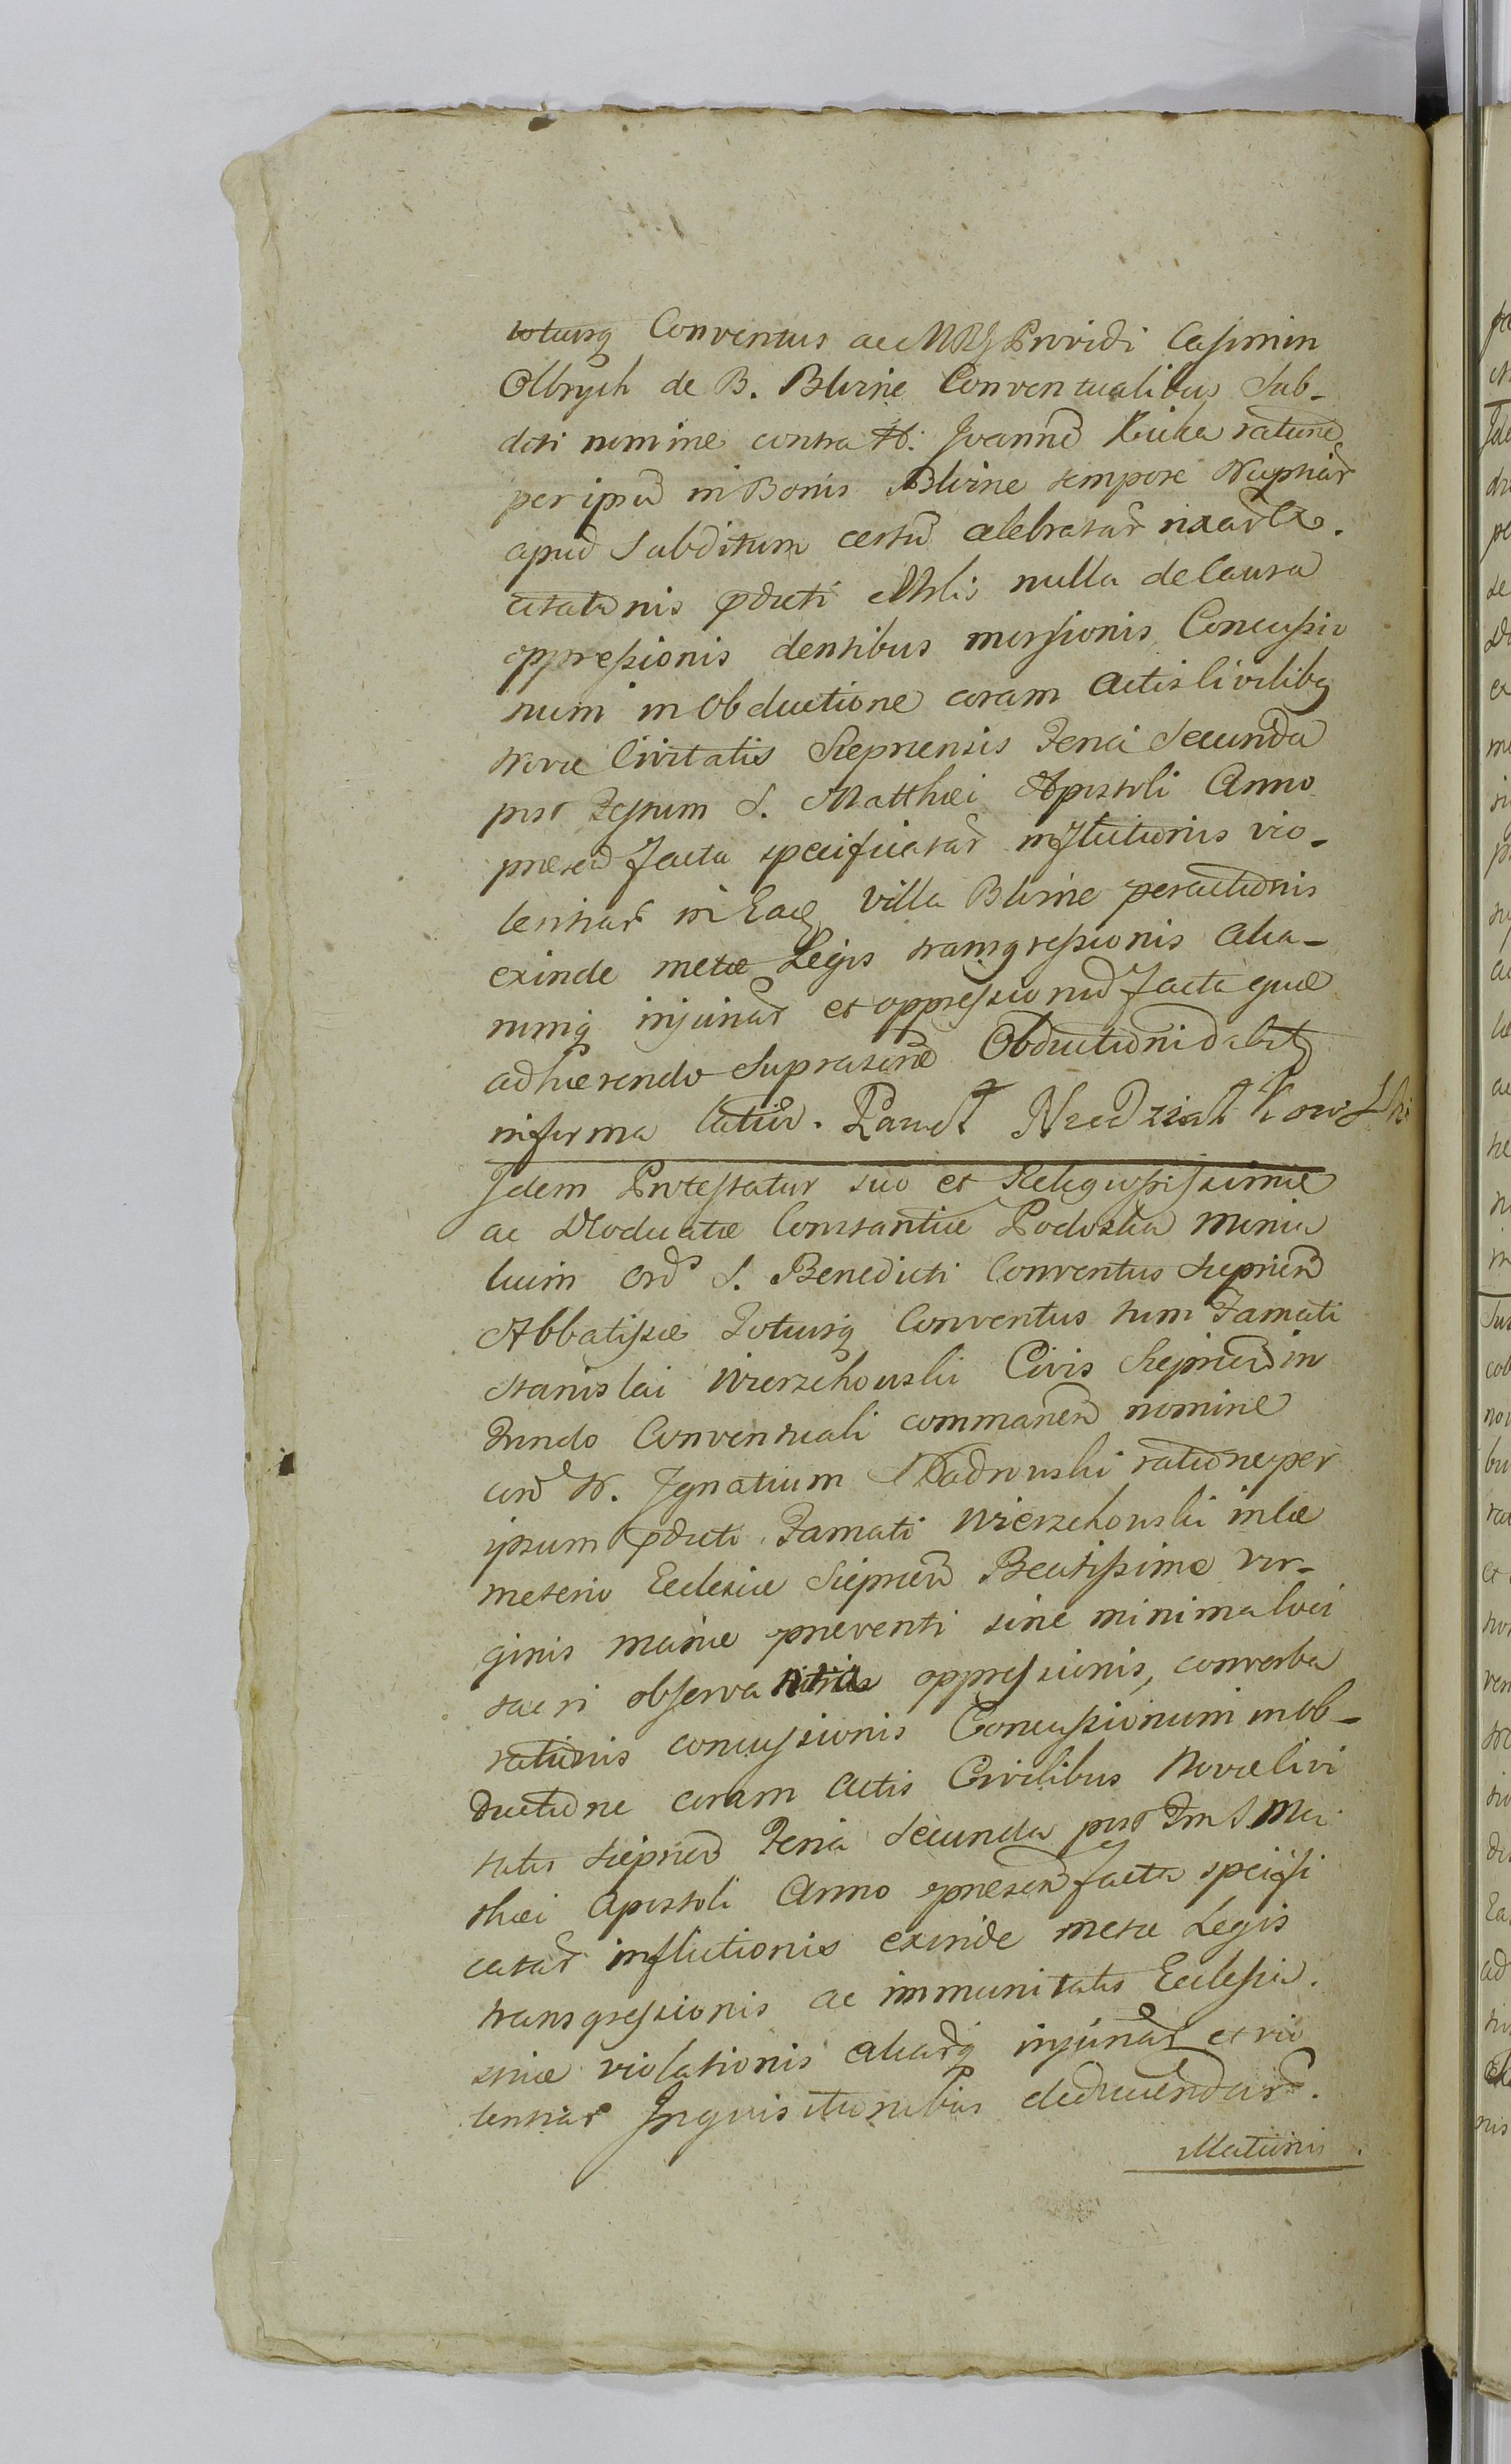 totiusq Conventus ac Providi Casimiri
Olbrych de B. Blizne Conventualibus Sub-
diti nomine contra N. Joannē ratione
per ipsū in Bonis Blizne tempore Nuptiar
apud Subditum certū celebratar
citationis pdicti nulla de Causa
oppressionis dentibus morsionis Concussio
num in Obductione coram Actis Civilibq
Novæ Civitatis Sieprcensis Feria Secunda
post Festum S. Matthæi Apostoli Anno
præsen facta specificatar inflictionis vio-
lentiar in Eadq Villa Blizne peractionis
exinde metæ Legis transgressionis Alia-
rumq injuriar et oppressionū facta quæ
adhærendo Suprascrip Obductioni
in forma latior. Paweł Niedzialkowski
Idem Protestatur suo et Religiosissimæ
ac Devotæ Constantiæ Podoska Monia
lium Ord S. Benedicti Conventus Sieprcen
Abbatissæ Totiusq Conventus tum Famati
Stanislai Wierzchowski Civis Sieprcen in
Fundo Conventuali commanen nomine
con N. Ignatium Nadrowski ratione per
ipsum pdicti Famati Wierzchowski in Cæ
meterio Ecclesiæ Sieprcen Beatissimæ Vir-
ginis Mariæ præventi sine minima loci
sacri observa oppressionis, converbe
rationis concussionis Concussionum in Ob-
ductione coram Actis Civilibus Novæ Civi
tatis Sieprcen Feria Secunda post Fm S. Mat
thæi Apostoli Anno præsen facta specifi
catar inflictionis exinde metæ Legis
transgressionis ac immunitatis Ecclesia.
sticæ violationis aliarq injuriar et vio
lentiar Inquisitionibus deducendar.
Mationis.